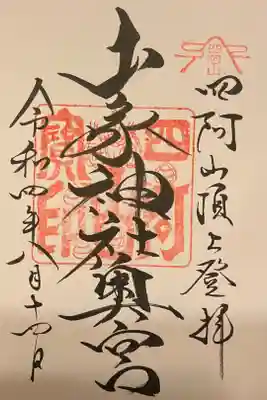 四阿山頂上登拝
山家神社奥宮
令和四年八月十四日
四阿
寶印